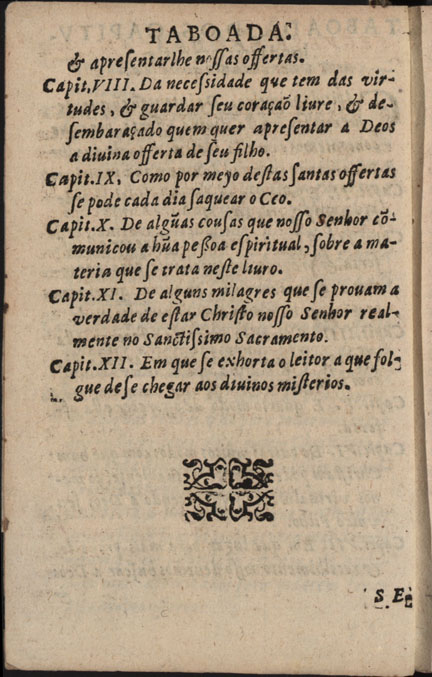 TABOADA.
& apresentarlhe nossas offertas.
Capit.VIII. Da necessidade que tem das vir-
tudes, & guardar seu coraçaõ liure, & de-
sembaraçado quem quer apresentar a Deos
a diuina offerta de seu filho.
Capit.IX, Como por meyo destas santas offertas
se pode cada dia saquear o Ceo.
Capit.X. De algũas cousas que nosso Senhor cõ-
municou a hũa peßoa espiritual, sobre a ma-
teria que se trata neste liuro.
Capit.XI. De alguns milagres que se prouam a
verdade de estar Christo nosso Senhor real-
mente no Sanctissimo Sacramento.
Capit.XII. Em que se exhorta o leitor a que fol-
gue de se chegar aos diuinos misterios.
S E